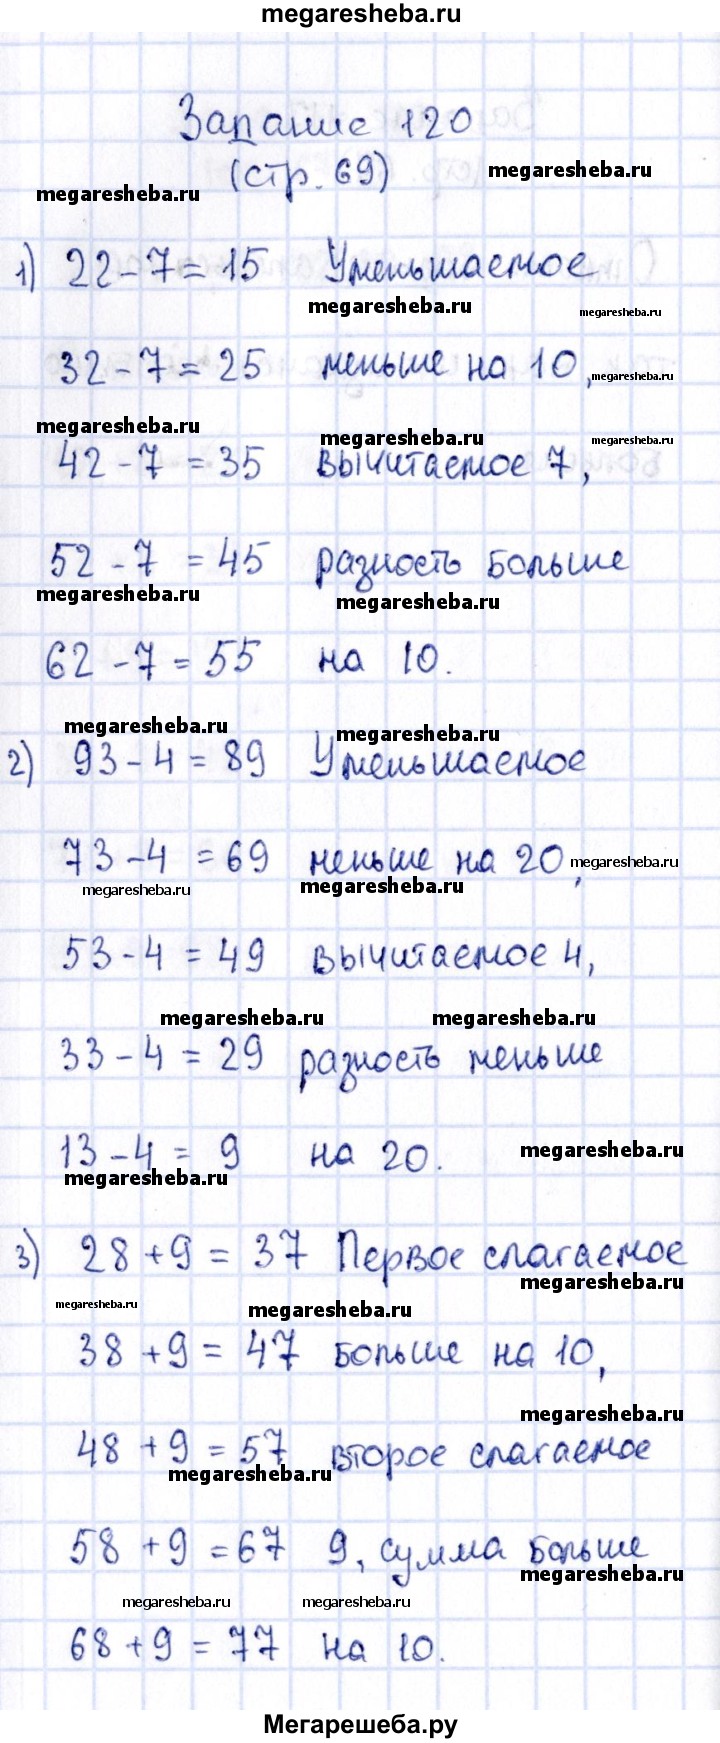 megaresheba.ru
Задание 120
(стр. 69)
megaresheba.ru megaresheba.ru
1) 22 - 7 = 15 Уменьшаемое
megaresheba.ru megaresheba.ru
32 - 7 = 25 меньше на 10,
megaresheba.ru
megaresheba.ru megaresheba.ru megaresheba.ru
42 - 7 = 35 вычитаемое 7,
52 - 7 = 45 разность больше
megaresheba.ru megaresheba.ru
62 - 7 = 55 на 10.
megaresheba.ru megaresheba.ru
2) 93 - 4 = 89 Уменьшаемое
73 - 4 = 69 меньше на 20,
megaresheba.ru
megaresheba.ru megaresheba.ru
53 - 4 = 49 вычитаемое 4,
megaresheba.ru megaresheba.ru
33 - 4 = 29 разность меньше
13 - 4 = 9 на 20.
megaresheba.ru megaresheba.ru
3) 28 + 9 = 37 Первое слагаемое
megaresheba.ru
megaresheba.ru megaresheba.ru
38 + 9 = 47 больше на 10,
megaresheba.ru
48 + 9 = 57 второе слагаемое
megaresheba.ru
58 + 9 = 67 9, сумма больше
megaresheba.ru
megaresheba.ru megaresheba.ru
68 + 9 = 77 на 10.
Мегарешеба.ру